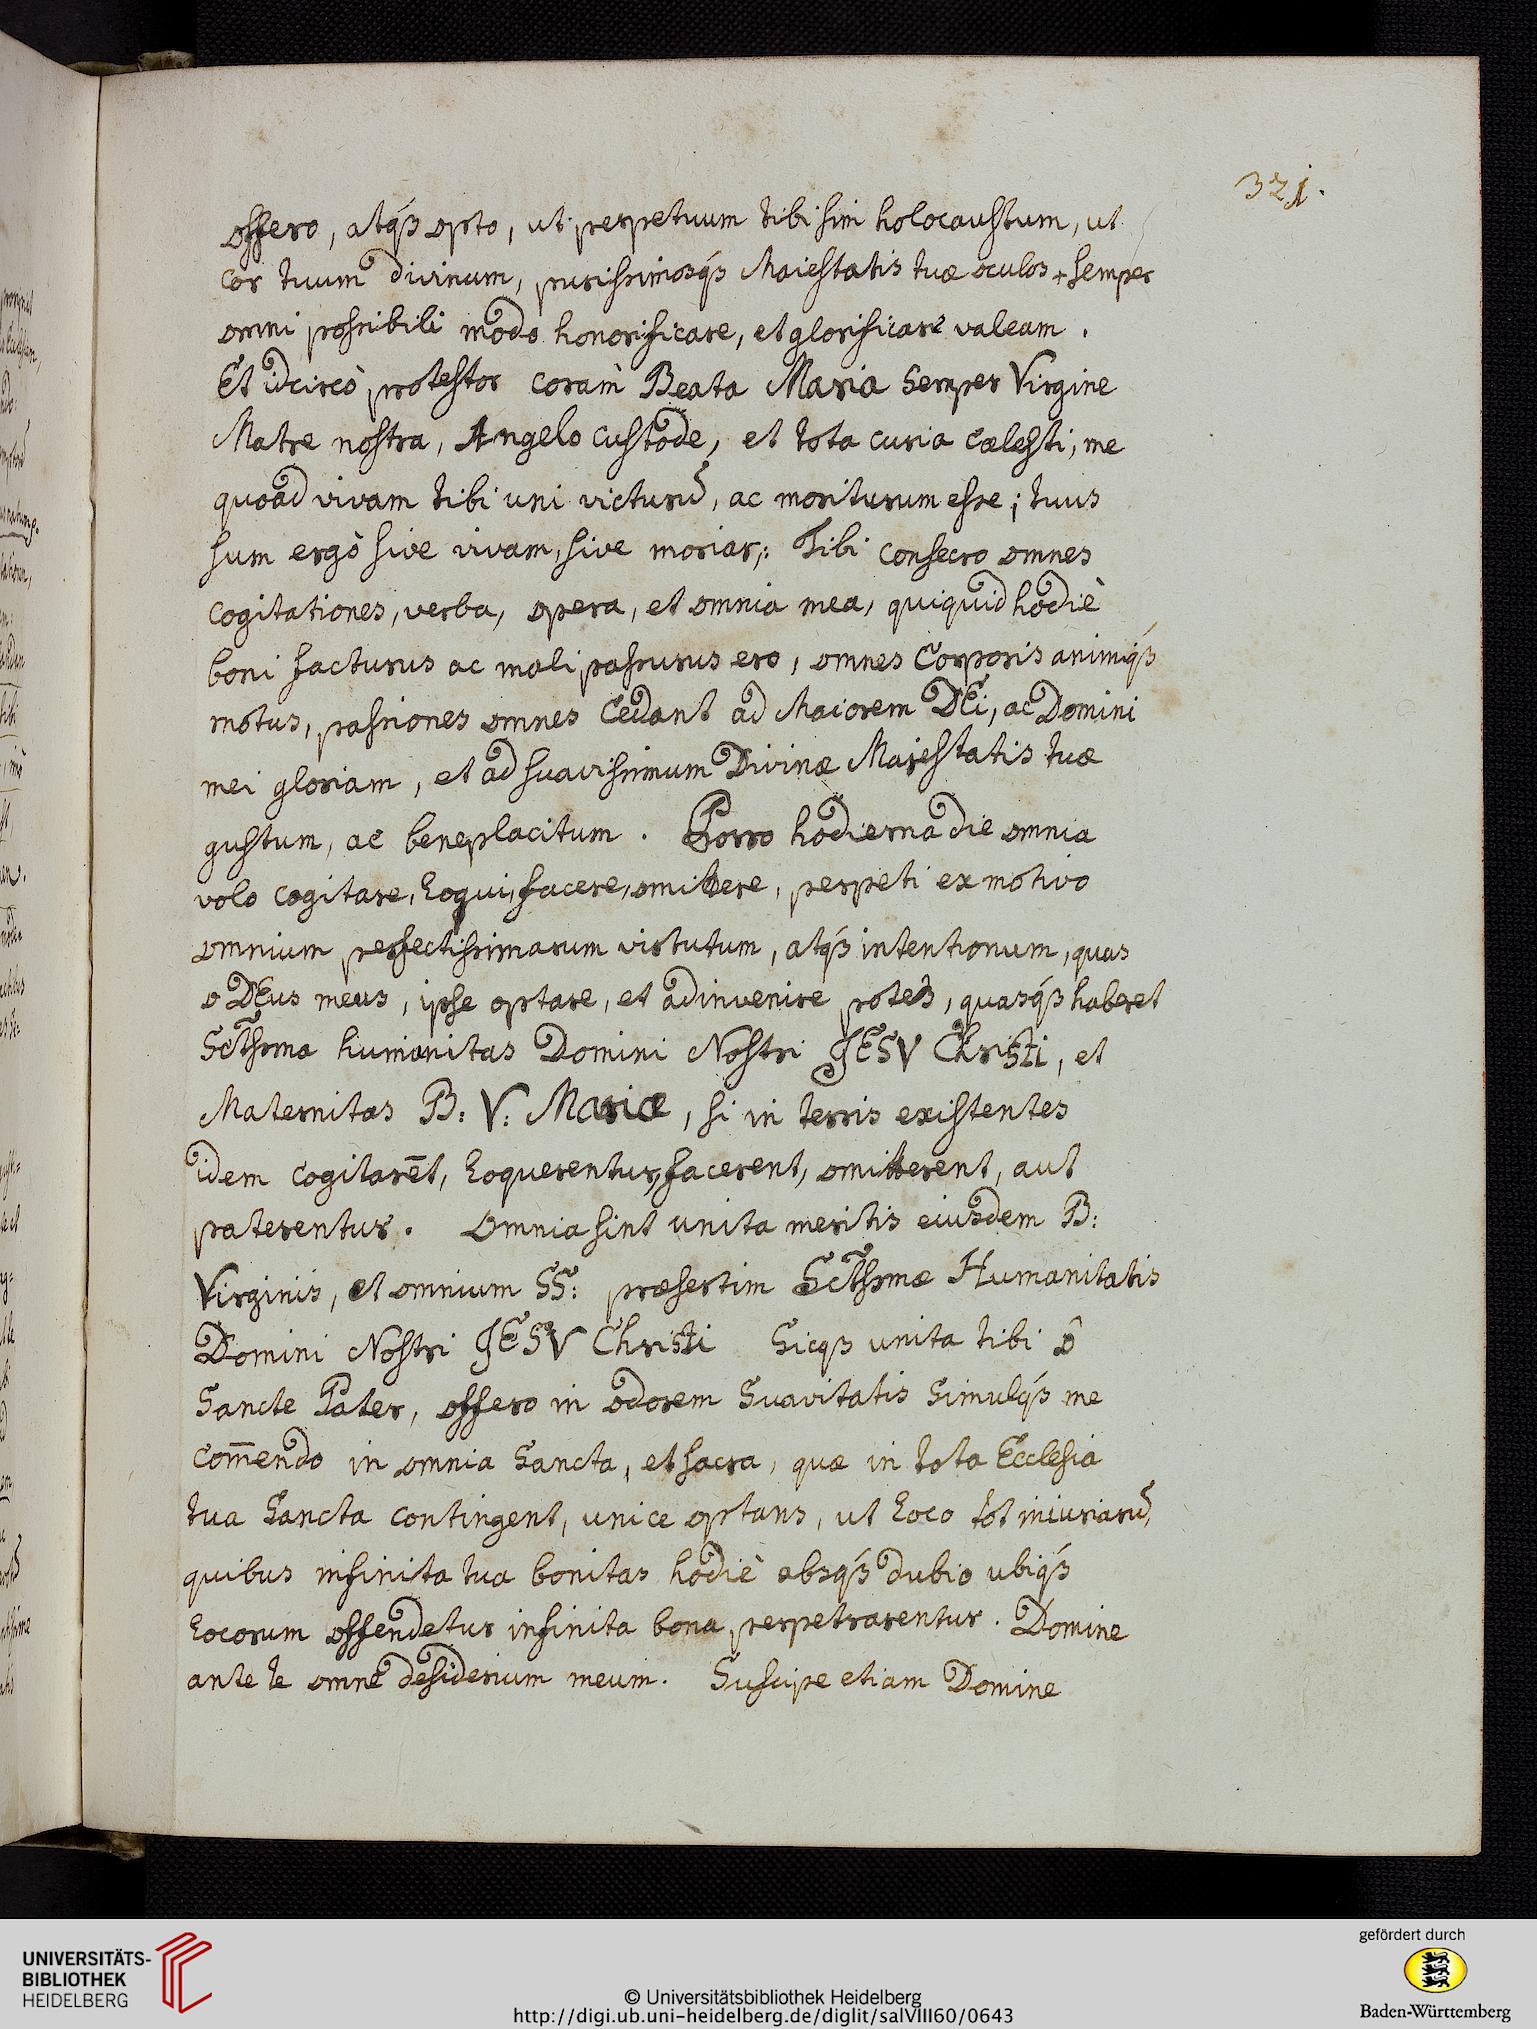 321.
offero, atq́3 opto, ut perpetuum tibi sim holocaustum, ut
cor tuum divinum, purissimosq́3 Maiestatis tuæ oculos semper
omni possibili modo honorificare, et glorificare valeam.
Et idcircò protestor coram Beata Maria Semper Virgine
Matre nostra, Angelo custode, et tota curia cælesti, me
quoad vivam tibi uni victurū, ac moriturum esse; tuus
sum ergò sive vivam, sive moriar,: Tibi consecro omnes
cogitationes, verba, opera, et omnia mea, quiquid hodiè
boni facturus ac mali passurus ero, omnes Corporis animiq́3
motus, passiones omnes Cedant ad Maiorem DEi, ac Domini
mei gloriam, et ad suavissimum Divinæ Majestatis tuæ
gustum, ac beneplacitum. Porro hodierna die omnia
volo cogitare, loqui, facere, omittere, perpeti ex motivo
omnium perfectissimarum virtutum, atq́3 intentionum, quas
o DEus meus, ipse optare, et adinvenire potes, quasq́3 haberet
Sctssma humanitas Domini Nostri JESV Christi, et
Maternitas B: V: Mariæ, si in terris existentes
idem cogitarēt, loquerentur, facerent, omitterent, aut
paterentur. Omnia sint unita meritis eiusdem B:
Virginis, et omnium SS: præsertim Sctssmæ Humanitatis
Domini Nostri JESV Christi Sicq3 unita tibi ô
Sancte Pater, offero in odorem Suavitatis Simulq́3 me
com̄endo in omnia Sancta, et sacra, quæ in tota Ecclesia
tua Sancta contingent, unice optans, ut loco tot iniuriarū,
quibus infinita tua bonitas hodiè absq́3 dubio ubiq́3
locorum offendetur infinita bona perpetrarentur. Domine
ante te omne desiderium meum. Suscipe etiam Domine
UNIVERSITÄTS-
BIBLIOTHEK
HEIDELBERG
© Universitätsbibliothek Heidelberg
http://digi.ub.uni-heidelberg.de/diglit/salVIII60/0643
gefördert durch
Baden-Württemberg